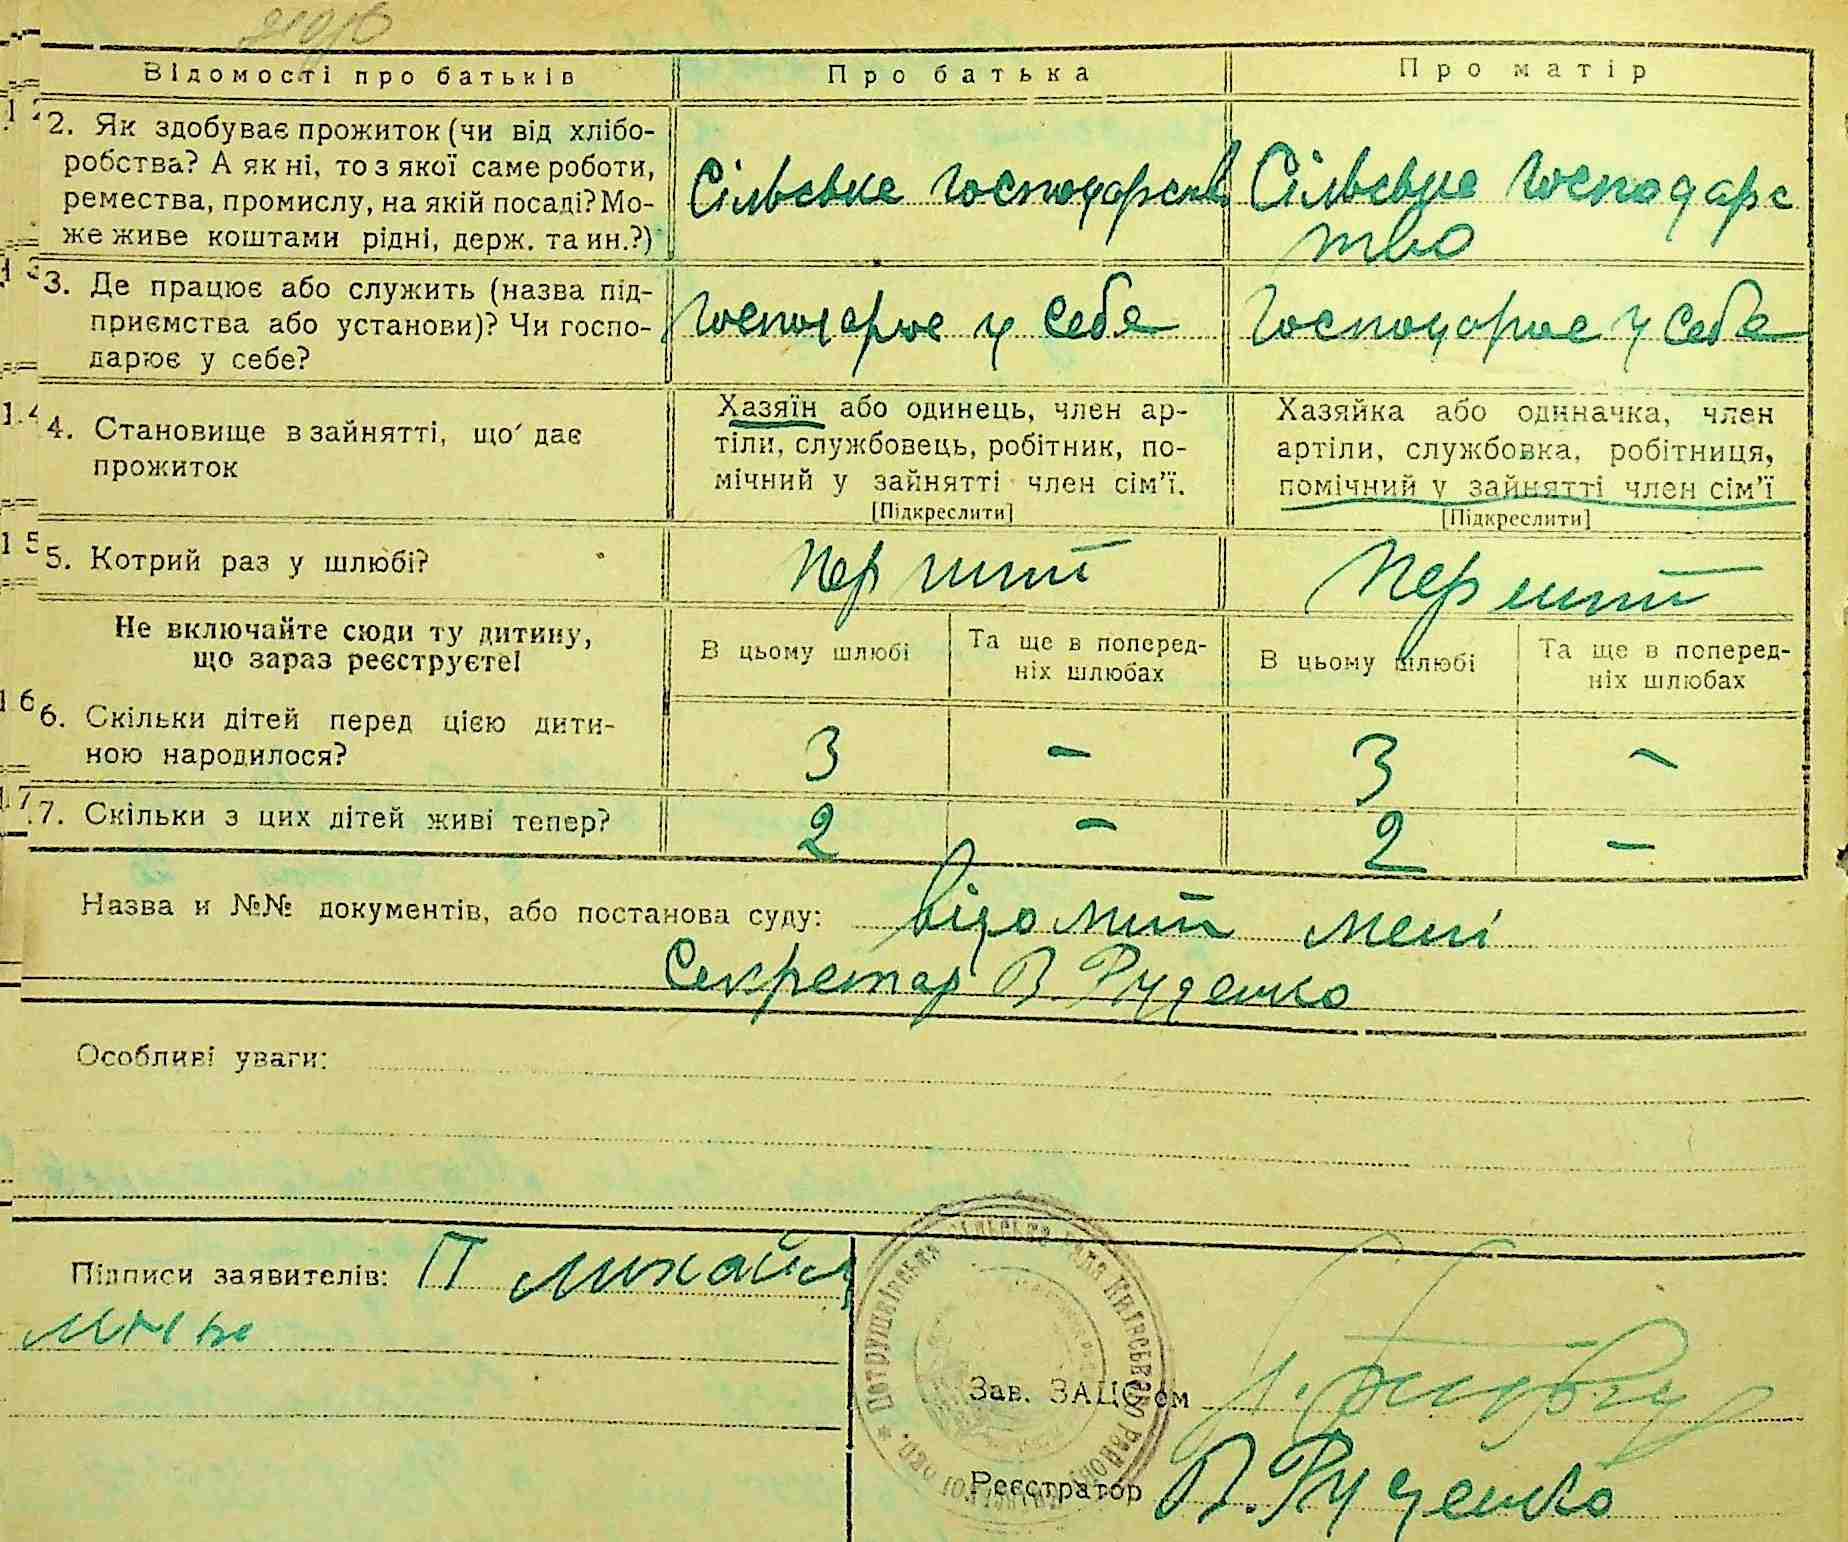 Відомості про батьків
Про батька
Про матір
2. Як здобуває прожиток (чи від хлібо-
робства? А як ні, то з якої саме роботи,
ремества, промислу, на якій посаді? Мо-
же живе коштами рідні, держ. та ин.?)
Сільське господарств
Сільське господарс
тво
3. Де працює або служить (назва під-
приємства або установи)? Чи госпо-
дарює у себе?
Господарює у себе
Господарює у себе
4. Становище в зайнятті, що дає
прожиток
Хазяїн або одинець, член ар-
тіли, службовець, робітник, по-
мічний у зайнятті член сім'ї.
[Підкреслити]
Хазяйка або одиначка, член
артіли, службовка, робітниця,
помічний у зайнятті член сім'ї
[Підкреслити]
5. Котрий раз у шлюбі?
Перший
Перший
Не включайте сюди ту дитину,
що зараз реєструєте!
В цьому шлюбі
Та ще в поперед-
ніх шлюбах
В цьому шлюбі
Та ще в поперед-
ніх шлюбах
6. Скільки дітей перед цією дити-
ною народилося?
3
–
3
–
7. Скільки з цих дітей живі тепер?
2
–
2
–
Назва и №№ документів, або постанова суду: Відомий мені
Секретар В. Руденко
Особливі уваги:
Підписи заявителів: П Михайл
Зав. ЗАЦСом
Реєстратор В. Руденко